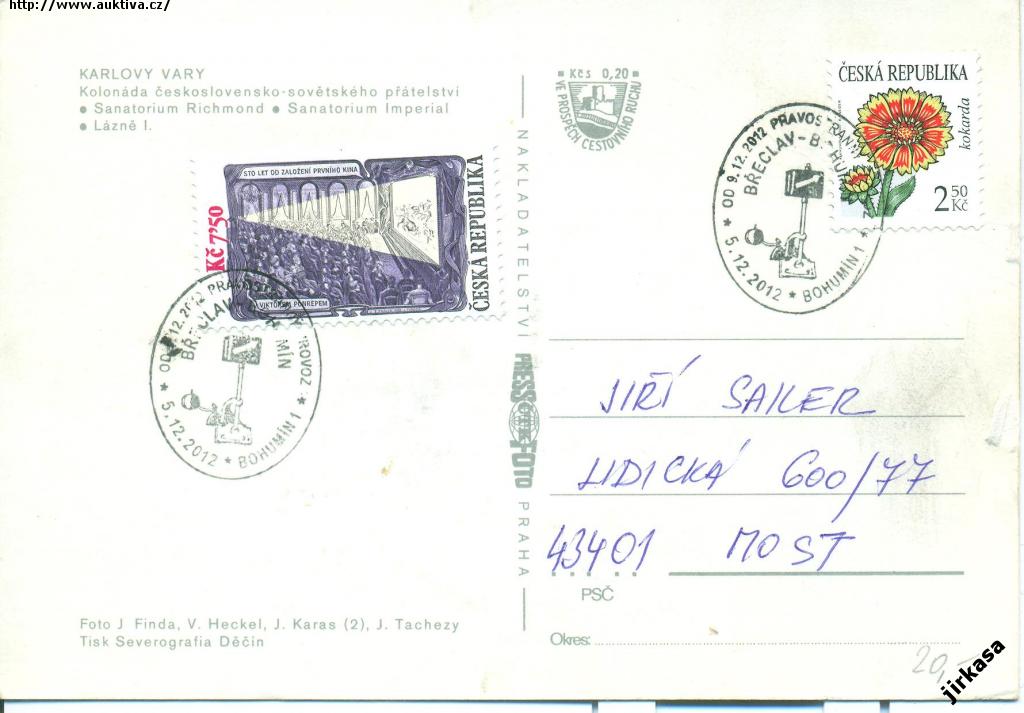 http://www.auktiva.cz/
KARLOVY VARY
Kolonáda československo-sovětského přátelství
● Sanatorium Richmond ● Sanatorium Imperial
● Lázně I.
STO LET OD ZALOŽENÍ PRVNÍHO KINA
VIKTOREM PONREPEM
Kč 7'50
ČESKÁ REPUBLIKA
BŘECLAV-
* 5.12.2012 * BOHUMÍN 1 *
NAKLADATELSTVÍ
PRESSFOTO
PRAHA
Kčs 0,20
VE PROSPĚCH CESTOVNÍHO RUCHU
* OD 9.12.2012
BŘECLAV-
* 5.12.2012 * BOHUMÍN 1 *
ČESKÁ REPUBLIKA
kokarda
2 50
Kč
JIŘÍ SAILER
LIDICKÁ 600/77
43401 MOST
PSČ
Okres:
Foto J Finda, V. Heckel, J. Karas (2), J. Tachezy
Tisk Severografia Děčín
20,-
jirkasa